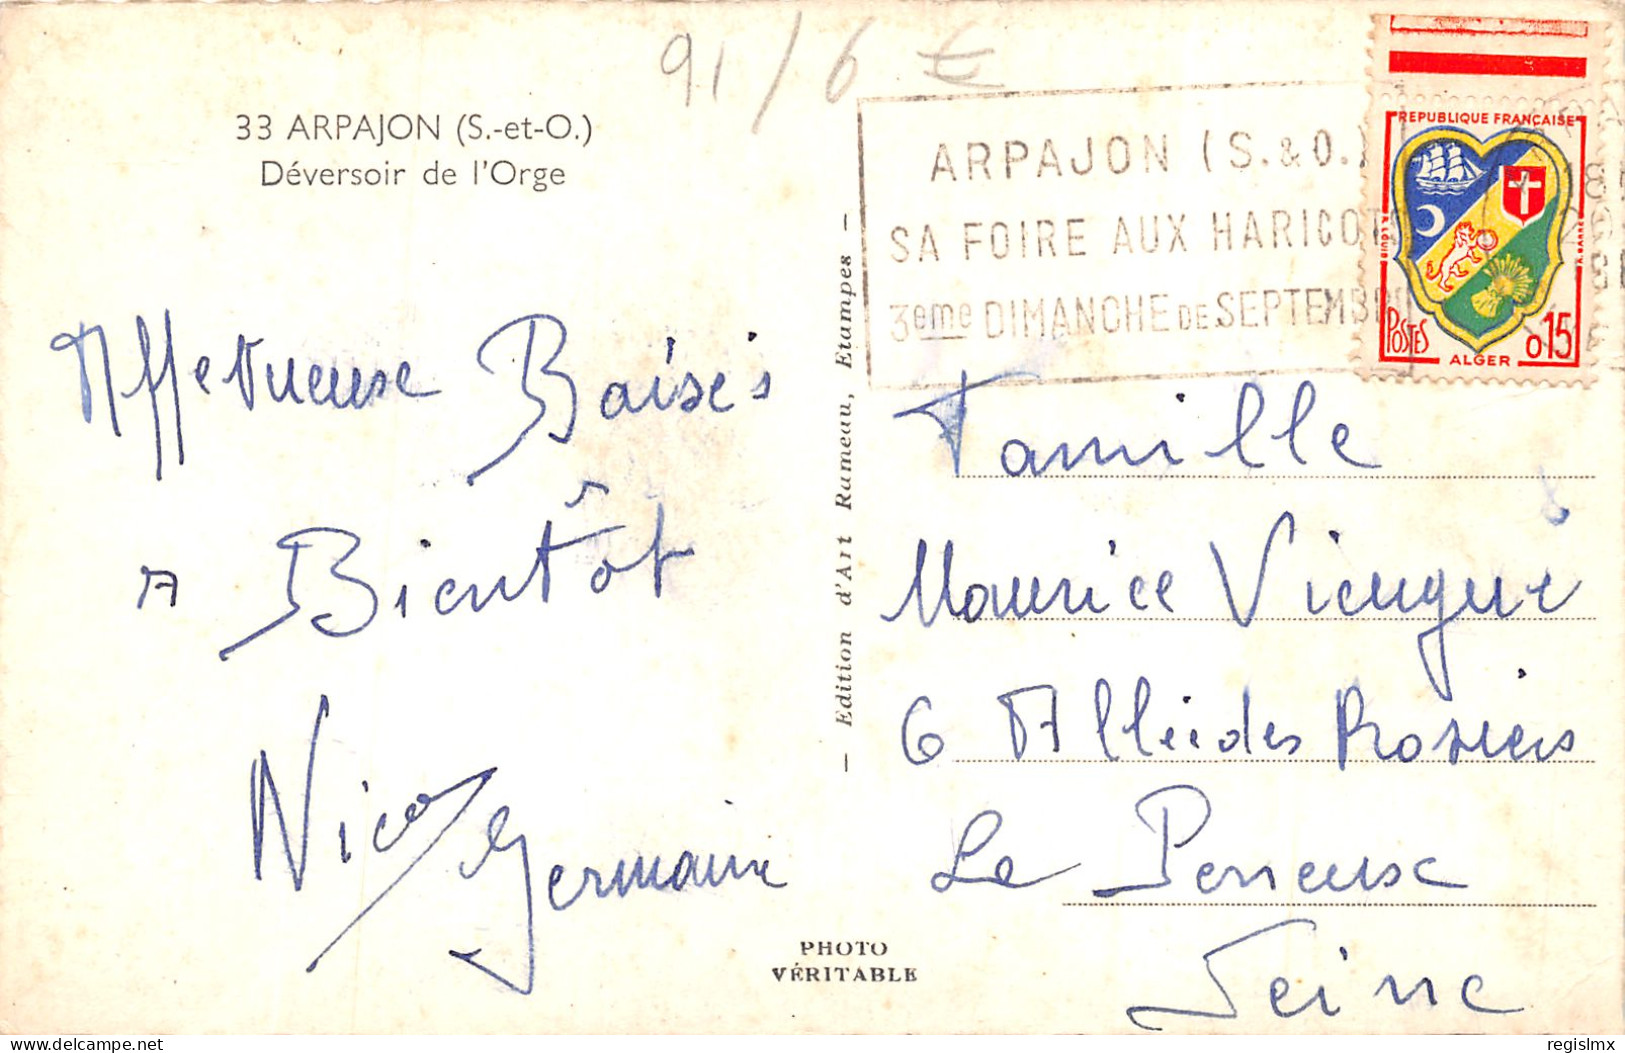 91/6 €
33 ARPAJON (S.-et-O.)
Déversoir de l'Orge
ARPAJON (S.&O.)
SA FOIRE AUX HARICOTS
3eme DIMANCHE DE SEPTEMBRE
REPUBLIQUE FRANÇAISE
POSTES
ALGER
0,15
Affectueuse Baisés
A Bientôt
Nico
Germaine
— Edition d'Art Rameau, Etampes —
PHOTO
VÉRITABLE
Famille
Maurice
6 Allée des Rosiers
Le Perreux
Seine
regislmx
delcampe.net